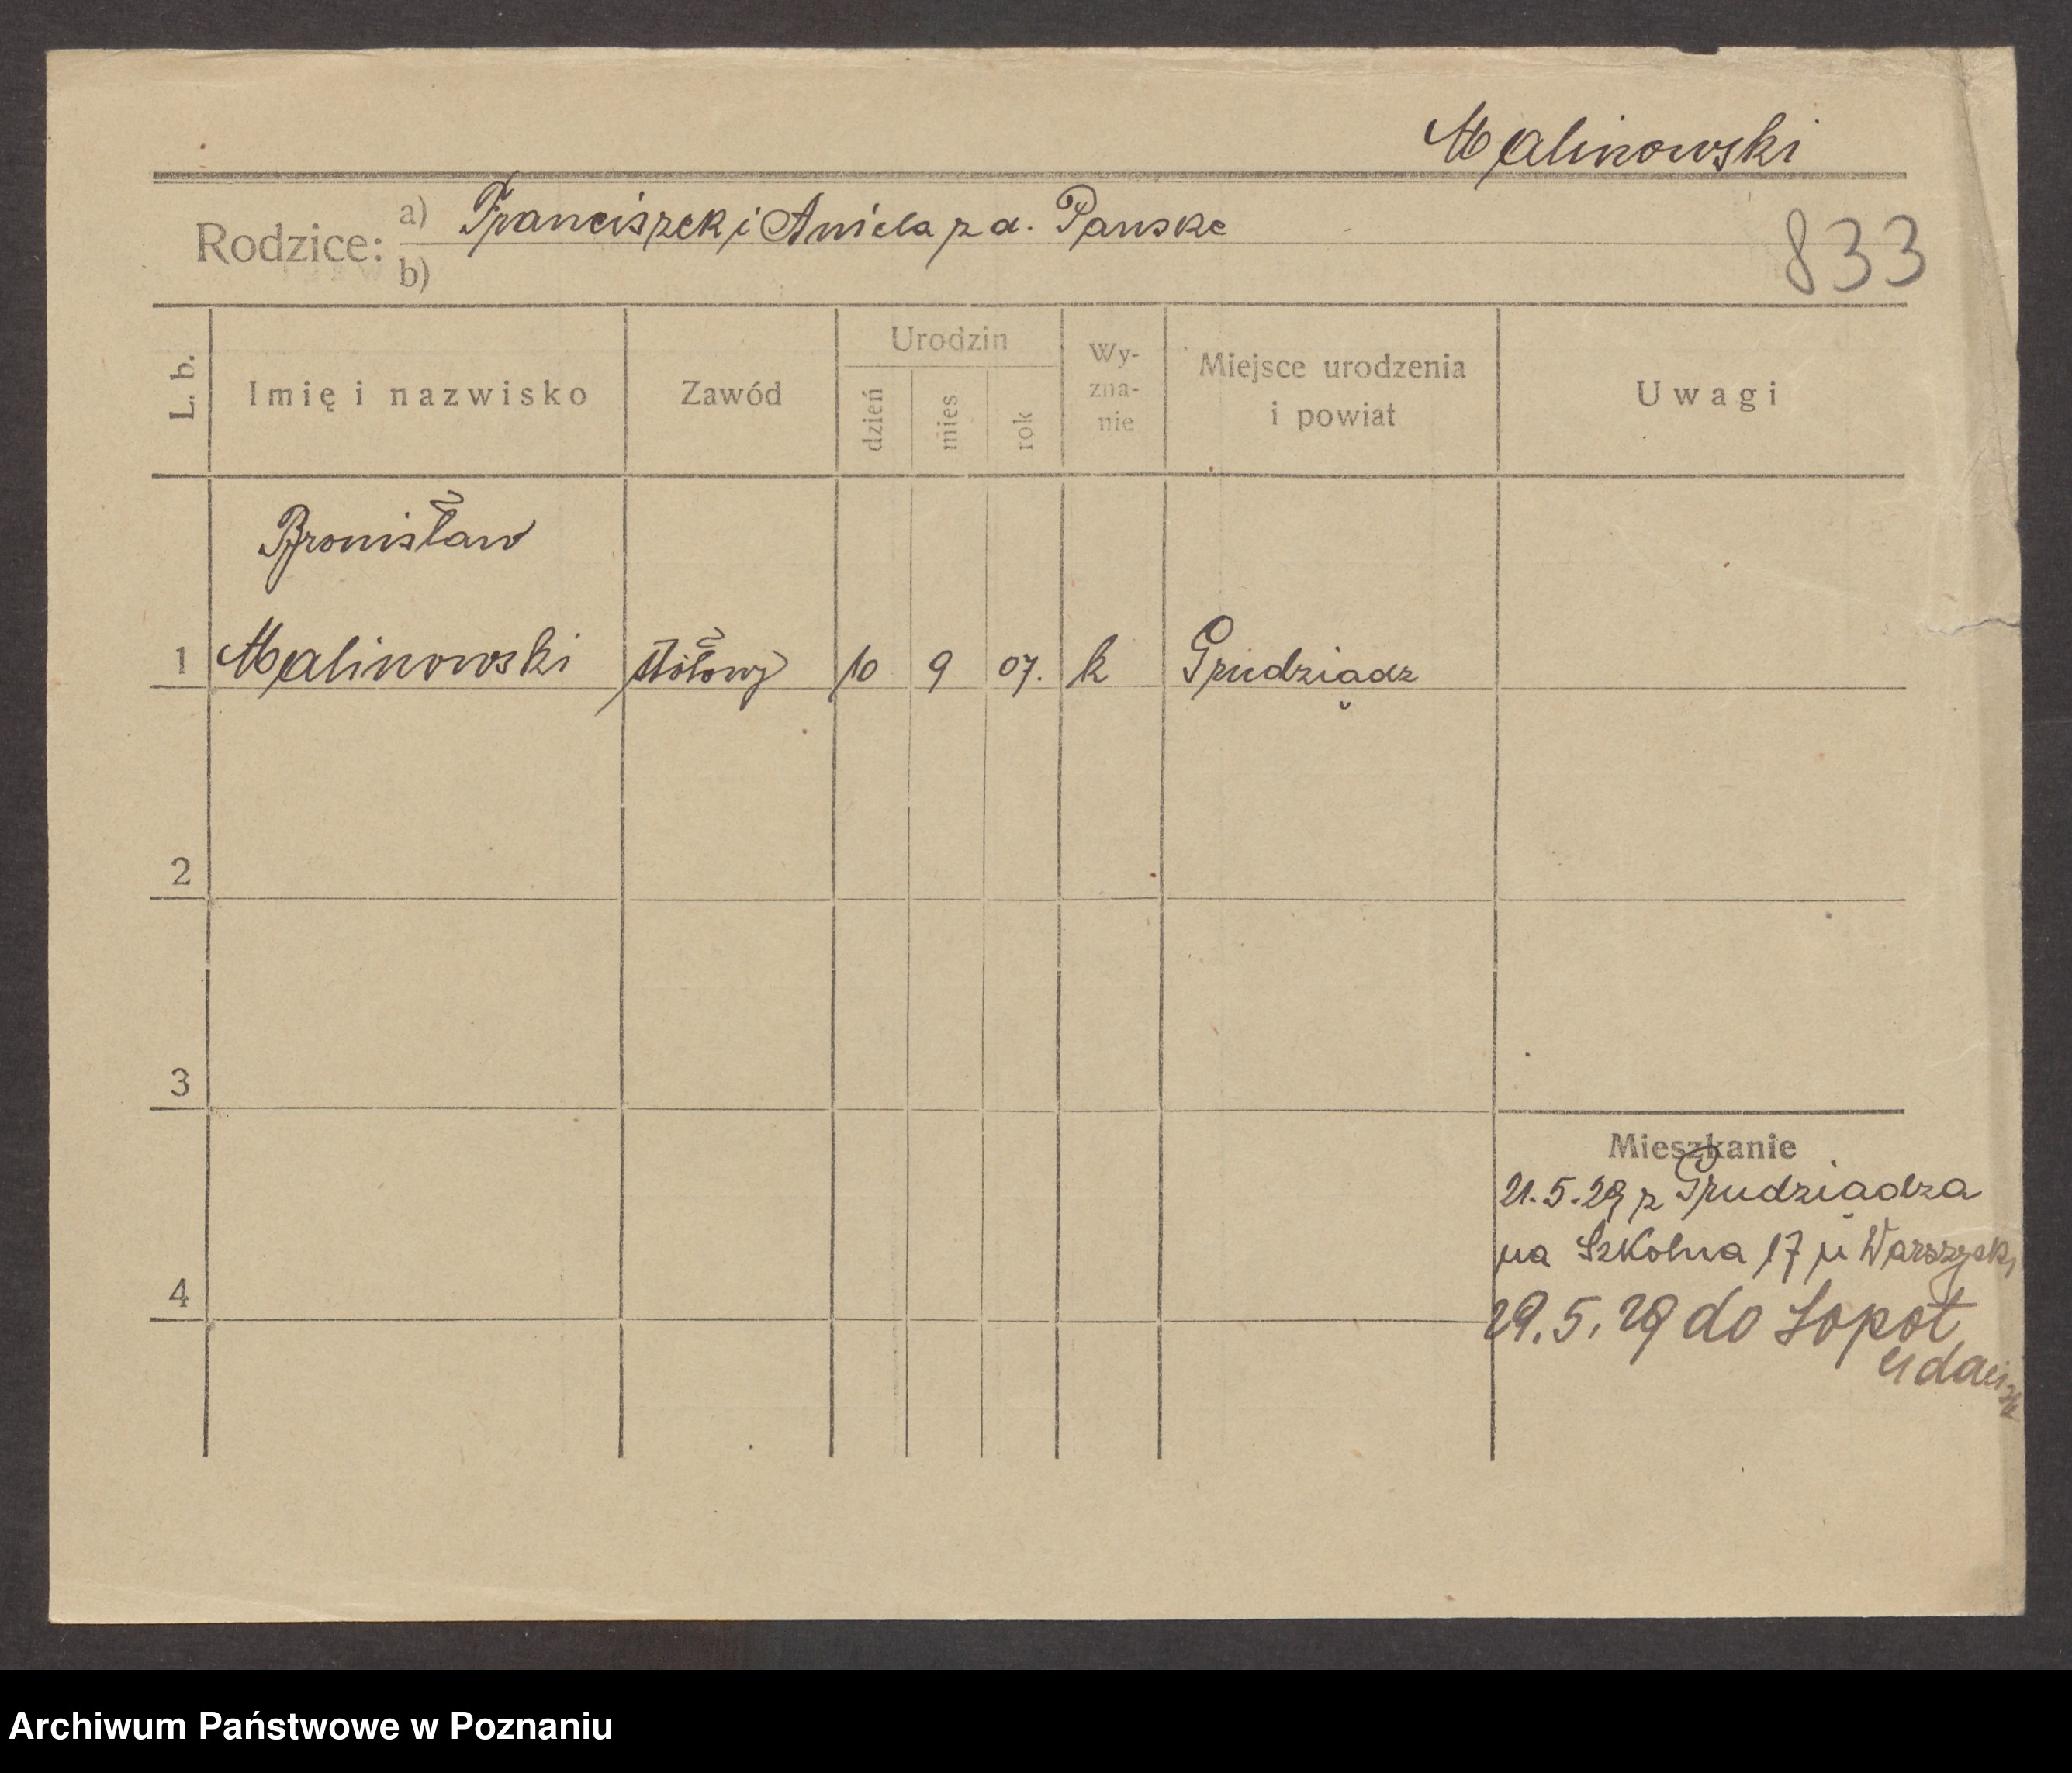 Malinowski
Rodzice: a) Franciszek i Aniela z d. Panske
b)
833
L. b.
Imię i nazwisko
Zawód
Urodzin
dzień
mies
rok
Wy-
zna-
nie
Miejsce urodzenia
i powiat
Uwagi
Bronisław
1 Malinowski 10 9 07. k Grudziądz
2
3
Mieszkanie
21.5.29 z Grudziądza
na Szkolna 17 u
4
29.5.29 do Sopot
Archiwum Państwowe w Poznaniu